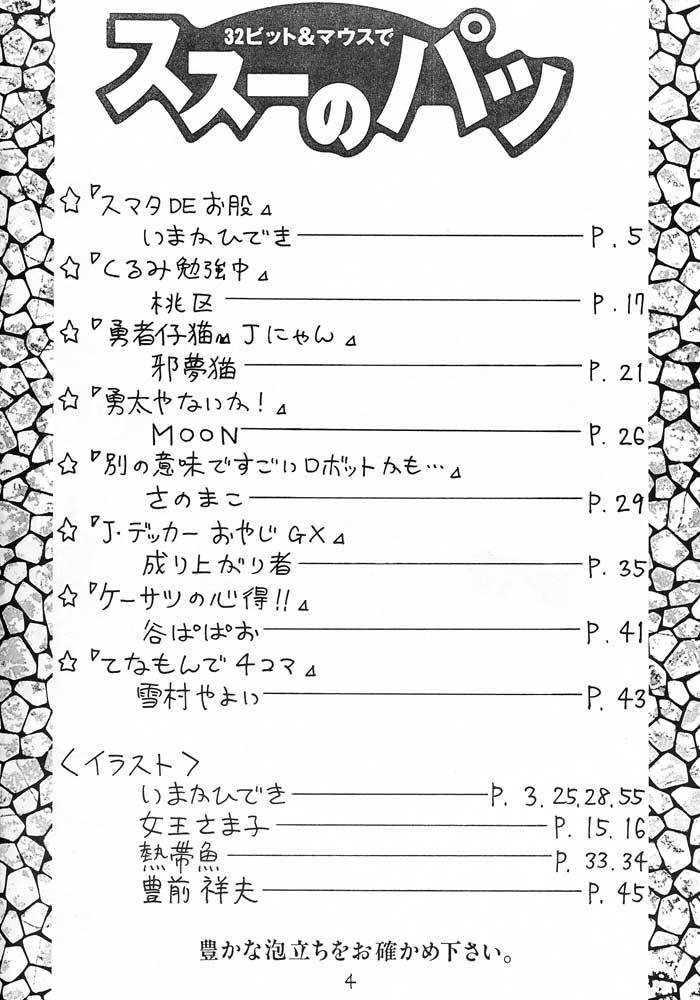 32ビット&マウスで
ススーのパッ
☆『スマタDEお股』
いまかひでき P.5
☆『くるみ勉強中』
桃区 P.17
☆『勇者仔猫 Jにゃん』
邪夢猫 P.21
☆『勇太やないか!』
MOON P.26
☆『別の意味ですごいロボットかも…』
さのまこ P.29
☆『J・デッカー おやじGX』
成り上がり者 P.35
☆『ケーサツの心得!!』
谷ぱぱお P.41
☆『てなもんで4コマ』
雪村やよい P.43
〈イラスト〉
いまかひでき P.3,25,28,55
女王さま子 P.15,16
熱帯魚 P.33,34
豊前祥夫 P.45
豊かな泡立ちをお確かめ下さい。
4